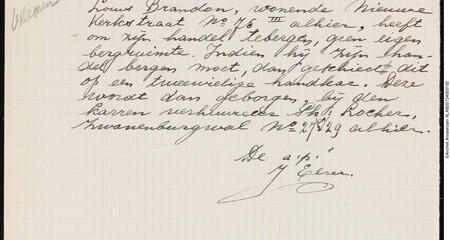 Louis Brandon, wonende Nieuwe
Kerkstraat No 76 III alhier, heeft
om zijn handel tebergen, geen eigen
bergruimte. Indien hij zijn han-
del bergen moet, dan geschiedt dit
op een tweewielige handkar. Deze
wordt dan geborgen, bij den
karren verhuurder Sh: Locher,
Zwanenburgwal No 27&29 alhier.
De a.p.